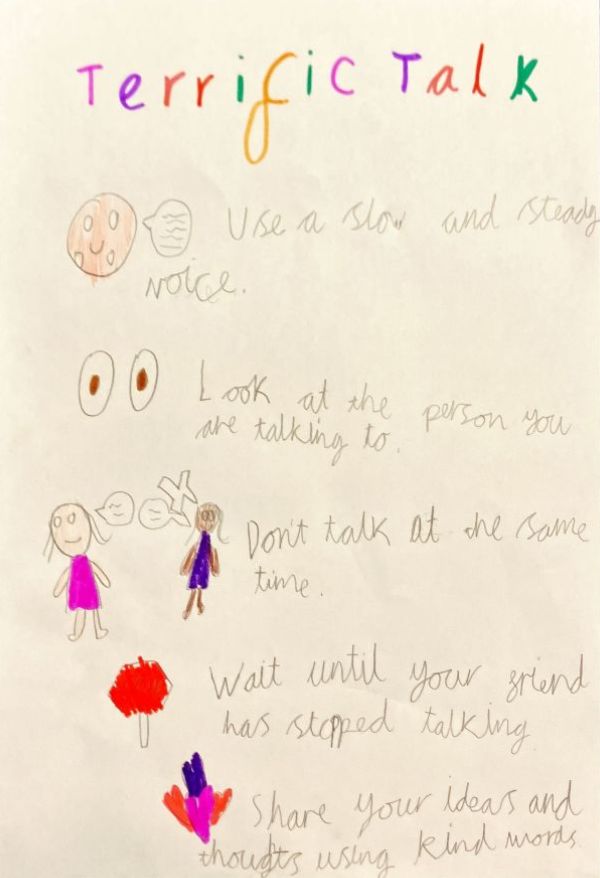 Terrific Talk
Use a slow and steady
voice.
Look at the person you
are talking to.
Don't talk at the same
time.
Wait until your friend
has stopped talking
Share your ideas and
thoughts using kind words